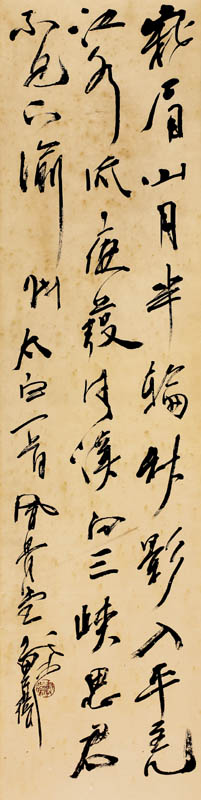 峨眉山月半輪秋影入平羌
江水流夜發清溪向三峽思君
不見下渝州太白一首風骨堂